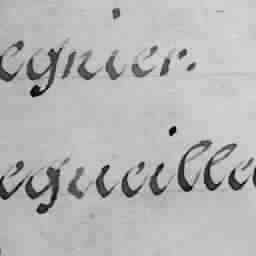 egnier.
egueille